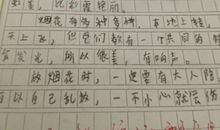 虹美，比彩霞艳丽。
烟花有多种多样，本地上转，
天上飞，但它们都有一个共同的特
会发光，所以很美，有响声。
放烟花时，一定要有大人陪
可以自己乱放，一不小心就会伤